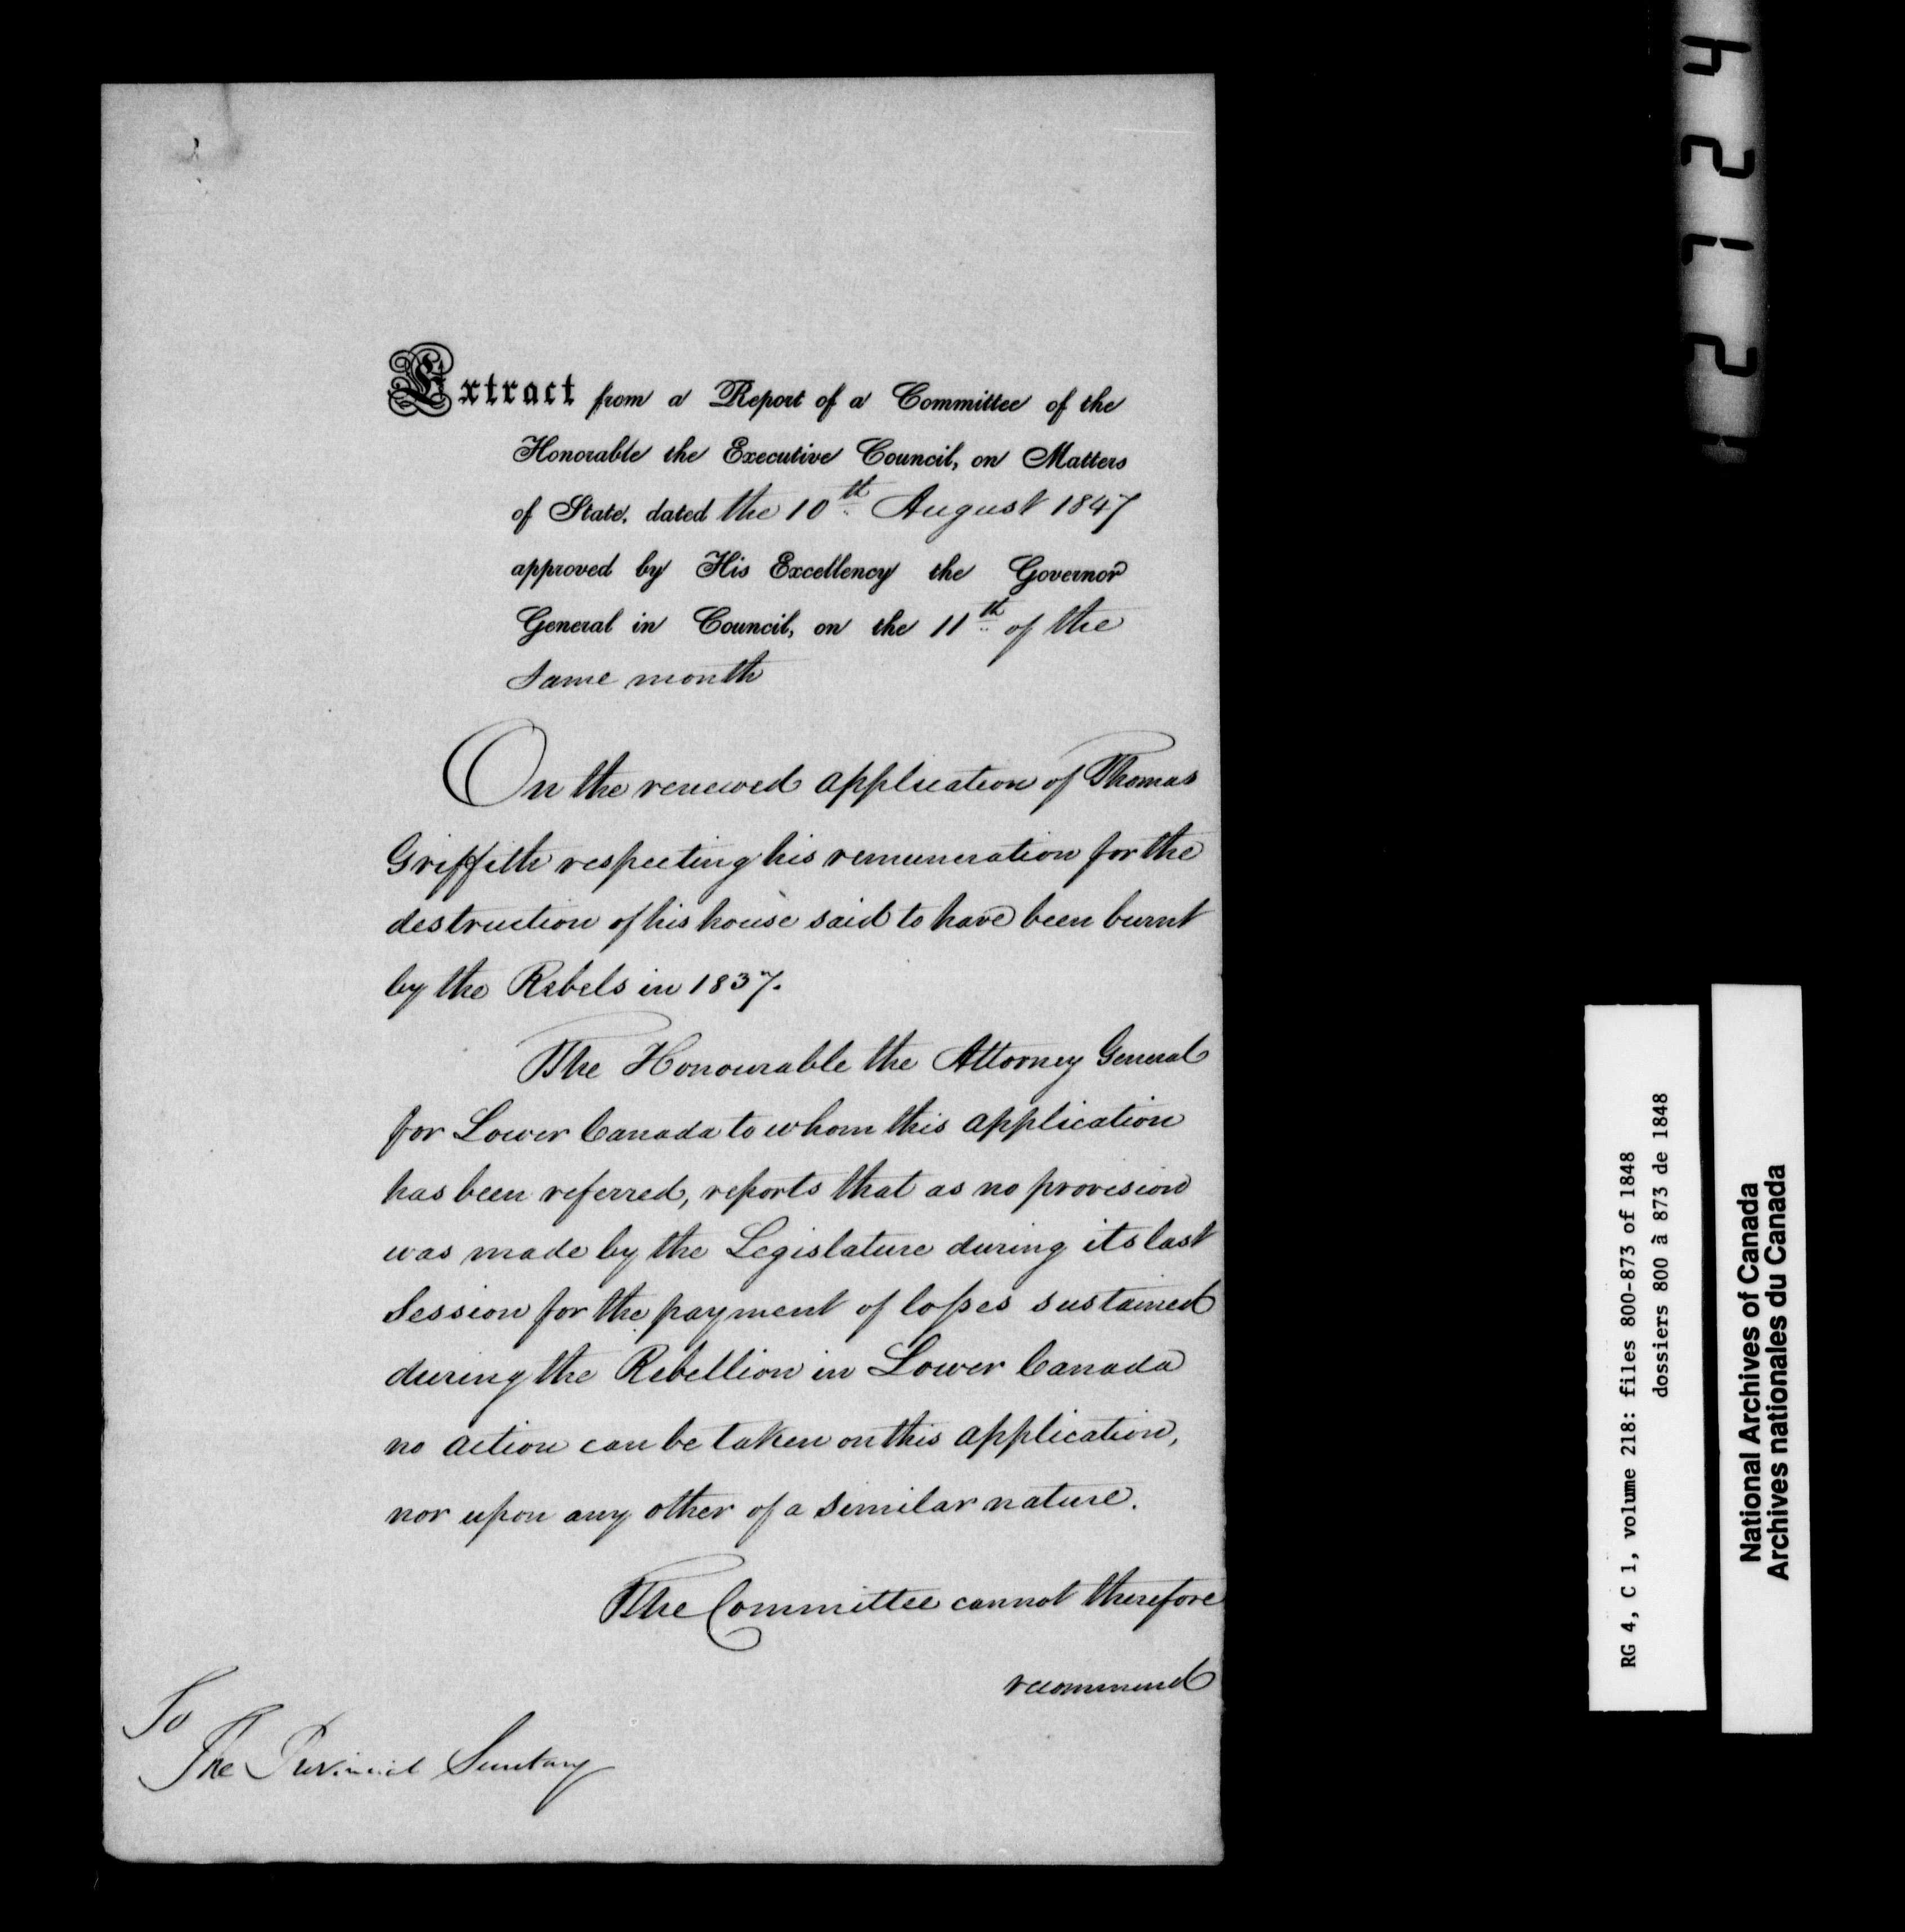 Extract from a Report of a Committee of the
Honorable the Executive Council, on Matters
of State, dated the 10th August 1847
approved by His Excellency the Governor
General in Council, on the 11th of the
same month
On the renewed application of Thomas
Griffith respecting his remuneration for the
destruction of his house said to have been burnt
by the Rebels in 1837.
The Honourable the Attorney General
for Lower Canada to whom this application
has been referred, reports that as no provision
was made by the Legislature during its last
Session for the payment of losses sustained
during the Rebellion in Lower Canada
no action can be taken on this application,
nor upon any other of a similar nature.
The Committee cannot therefore
recommend
To
The Provincial Secretary
4217
2
RG 4, C 1, volume 218: files 800-873 of 1848
dossiers 800 à 873 de 1848
National Archives of Canada
Archives nationales du Canada